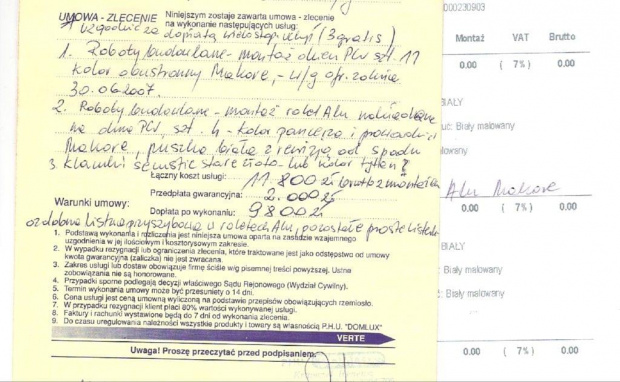 UMOWA - ZLECENIE Niniejszym zostaje zawarta umowa - zlecenie
na wykonanie następujących usług:
uzgodnić za dopłatą (3 gratis)
1. Roboty budowlane - montaż okien PCV szt. 11
kolor obustronny Makore, - w/g
30.06.2007.
2. Roboty budowlane - montaż rolet Alu
na okna PCV, szt. 4 - kolor pancerza i
Makore, puszka biała z rewizją od spodu
3. klamki stare złoto lub kolor tytan ?
Łączny koszt usługi: 11 800 zł brutto z montażem
Przedpłata gwarancyjna: 2.000 zł
Warunki umowy: Dopłata po wykonaniu: 9800 zł
ozdobna listwa przyszybowa w roletach Alu, pozostałe proste
1. Podstawą wykonania i rozliczenia jest niniejsza umowa oparta na zasadzie wzajemnego
uzgodnienia w jej ilościowym i kosztorysowym zakresie.
2. W wypadku rezygnacji lub ograniczenia zlecenia, które traktowane jest jako odstępstwo od umowy
kwota gwarancyjna (zaliczka) nie jest zwracana.
3. Zakres usług lub dostaw obowiązuje firmę ściśle w/g pisemnej treści powyższej. Ustne
zobowiązania nie są honorowane.
4. Przypadki sporne podlegają decyzji właściwego Sądu Rejonowego (Wydział Cywilny).
5. Termin wykonania umowy może być przesunięty o 14 dni.
6. Cena usług jest ceną umowną wyliczoną na podstawie przepisów obowiązujących rzemiosło.
7. W przypadku rezygnacji klient płaci 80% wartości wykonywanej usługi.
8. Faktury i rachunki wystawione będą do 7 dni od wykonania zlecenia.
9. Do czasu uregulowania należności wszystkie produkty i towary są własnością P.H.U. "DOMLUX"
VERTE
Uwaga! Proszę przeczytać przed podpisaniem:
000230903
Montaż VAT Brutto
0.00 ( 7%) 0.00
BIAŁY
uć: Biały malowany
lowany
Alu Makore
0.00 ( 7%) 0.00
BIAŁY
: Biały malowany
ć: Biały malowany
0.00 ( 7%) 0.00